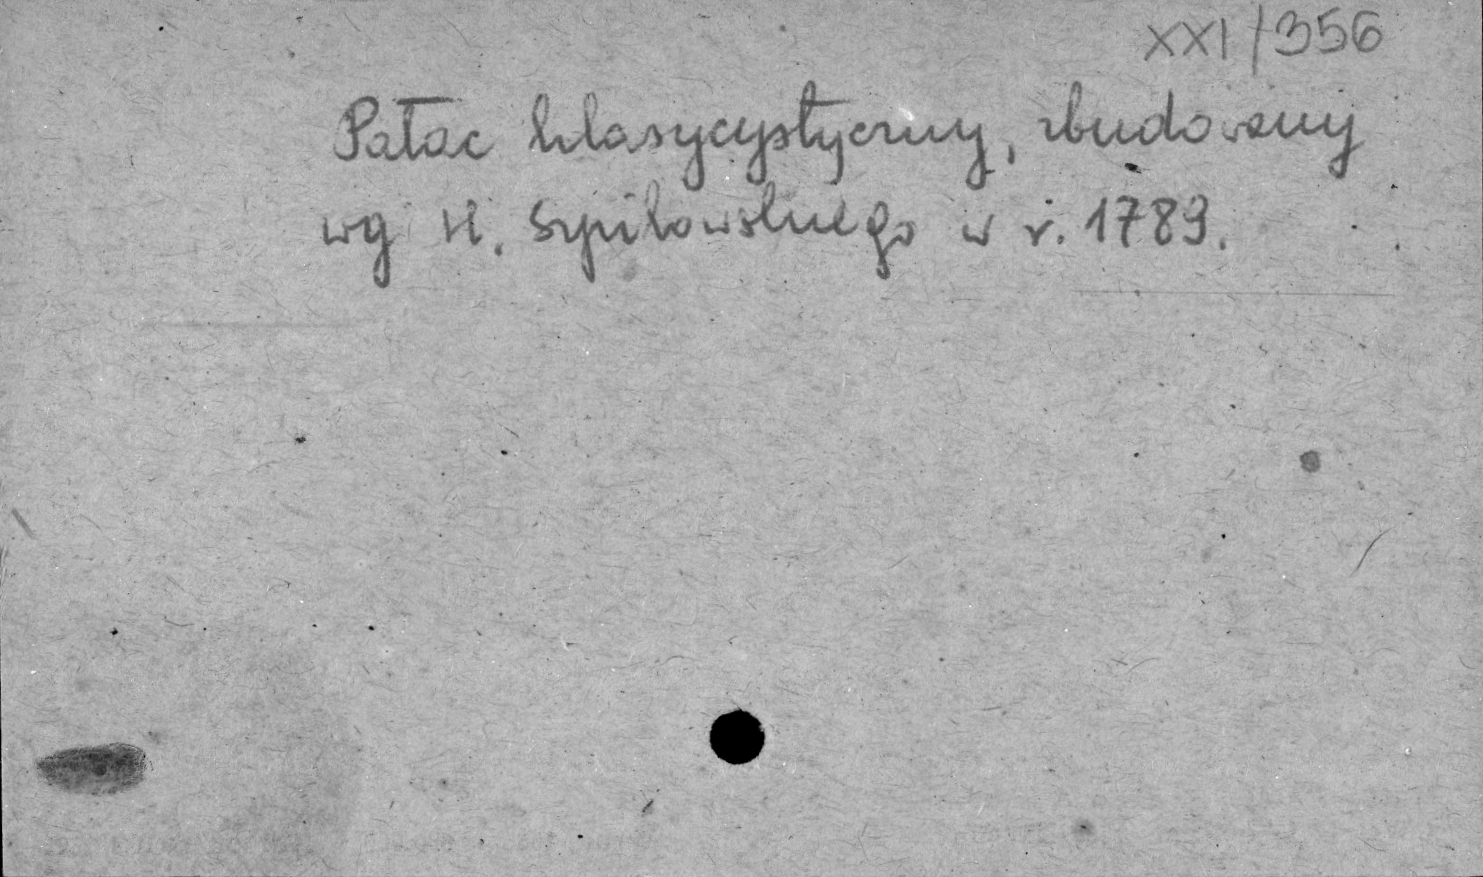 XXI/356
Pałac klasycystyczny, zbudowany
wg H. Szpilowskiego w r. 1789.